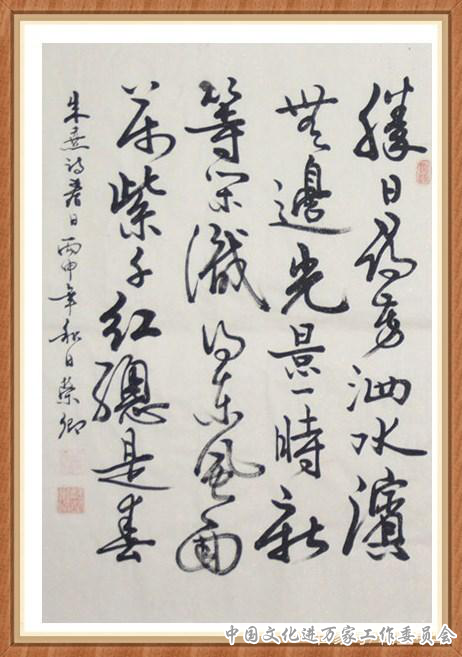 勝日尋芳泗水濱
無邊光景一時新
等閑識得東風面
萬紫千紅總是春
朱熹詩春日 丙申年秋日 榮卿
中国文化进万家工作委员会